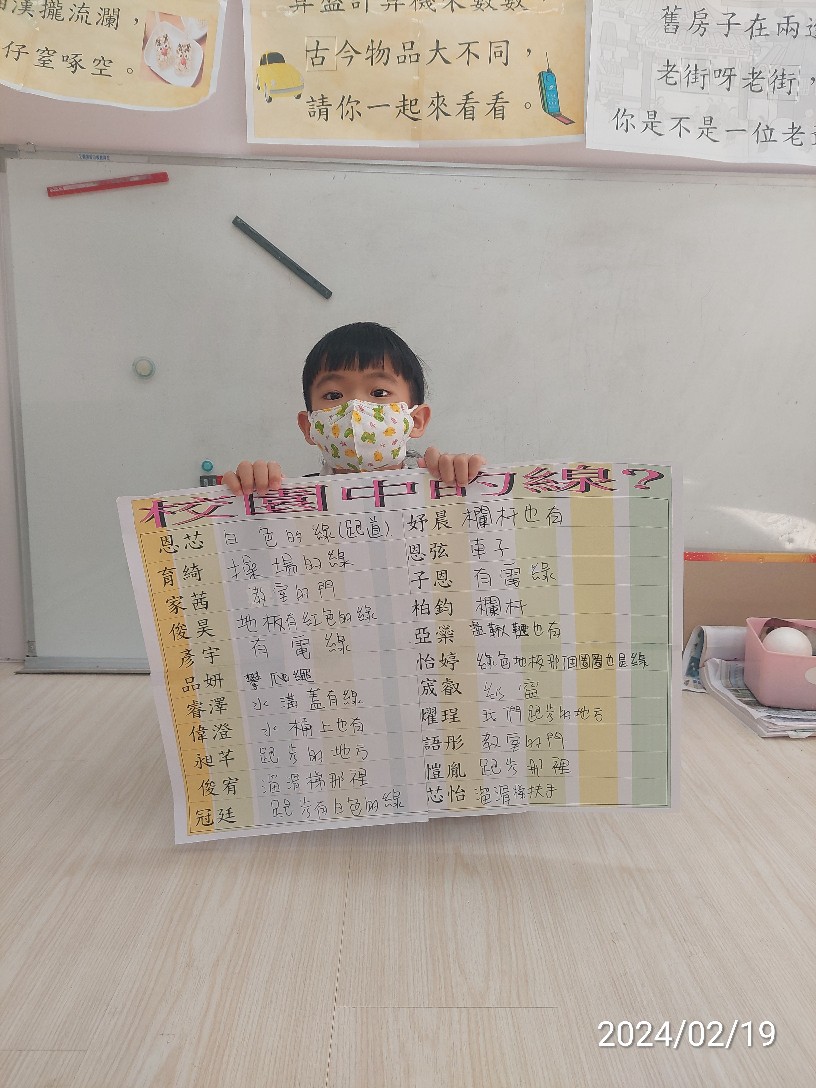 流瀾，
仔窒啄空。
算盤計算機來數數，
古今物品大不同，
請你一起來看看。
舊房子在兩
老街呀老街，
你是不是一位老
校園中的線？
恩芯 白色的線(跑道)
育綺 操場的線
家茜 教室的門
俊昊 地板有紅色的線
彥宇 有電線
品妍 攀爬繩
睿澤 水溝蓋有線
偉澄 水桶上也有
昶芊 跑步的地方
俊宥 溜滑梯那裡
冠廷 跑步有白色的線
妤晨 欄杆也有
恩弦 車子
子恩 有電線
柏鈞 欄杆
亞蘂 盪鞦韆也有
怡婷 綠色地板那個圈圈也是線
宬叡
燿珵 我們跑步的地方
語彤 教室的門
愷胤 跑步那裡
芯怡 溜滑梯扶手
2024/02/19